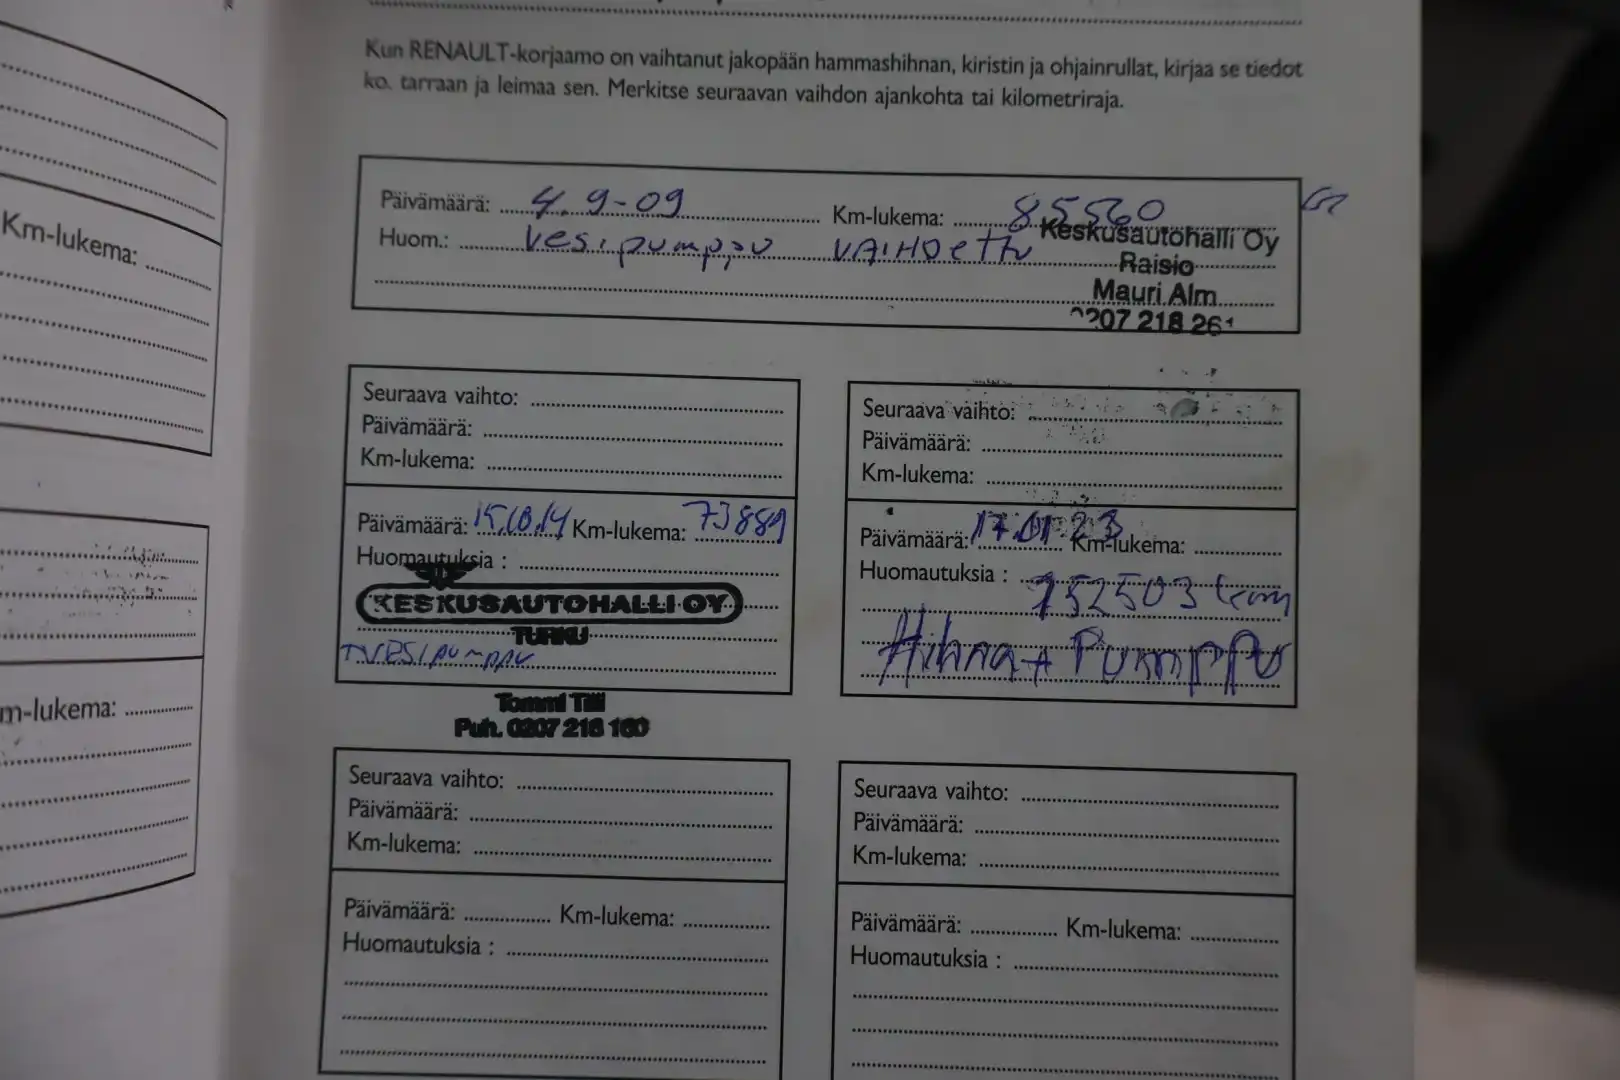 Kun RENAULT-korjaamo on vaihtanut jakopään hammashihnan, kiristin ja ohjainrullat, kirjaa se tiedot
ko. tarraan ja leimaa sen. Merkitse seuraavan vaihdon ajankohta tai kilometriraja.
Päivämäärä: 4.9-09 Km-lukema: 85560
Huom.: Vesipumppu VAIHDettu
Keskusautohalli Oy
Raisio
Mauri Alm
0207 218 261
Seuraava vaihto:
Päivämäärä:
Km-lukema:
Päivämäärä: 15.10.14 Km-lukema: 73889
Huomautuksia :
KESKUSAUTOHALLI OY
TURKU
VESIPUMPPU
Tommi Tilli
Puh. 0207 218 160
Seuraava vaihto:
Päivämäärä:
Km-lukema:
Päivämäärä: 17.01.23 Km-lukema:
Huomautuksia :
152503 tkm
Hihna + Pumppu
Seuraava vaihto:
Päivämäärä:
Km-lukema:
Päivämäärä: Km-lukema:
Huomautuksia :
Seuraava vaihto:
Päivämäärä:
Km-lukema:
Päivämäärä: Km-lukema:
Huomautuksia :
Km-lukema:
m-lukema: